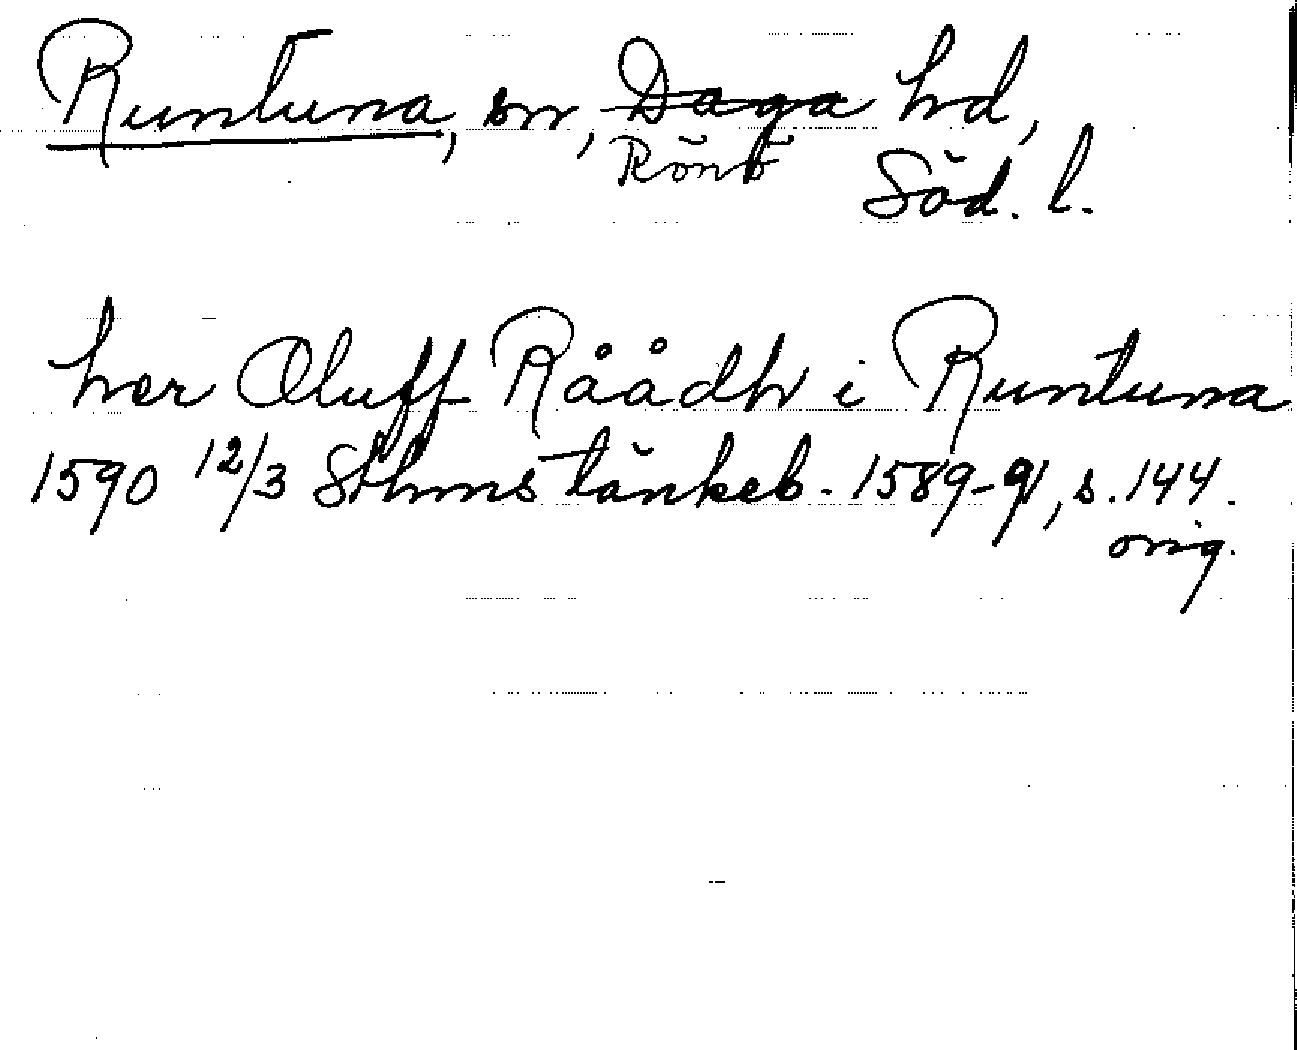 Runtuna, sn, Daga hd,
Rönö
Söd. l.
her Oluff Råådh i Runtuna
1590 12/3 Sthms tänkeb. 1589-91, s. 144.
orig.